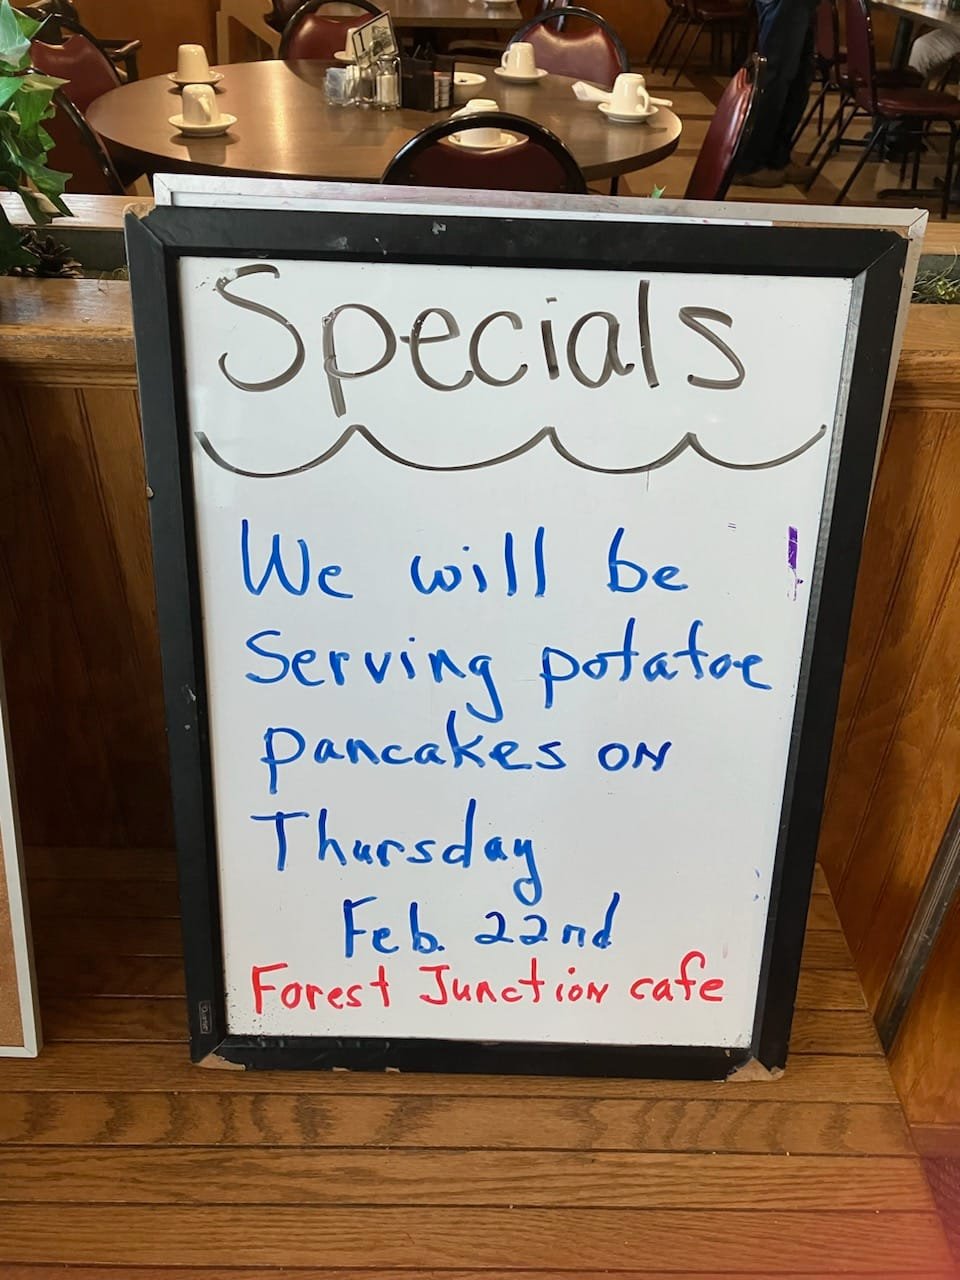 Specials
We will be
Serving potatoe
pancakes on
Thursday
Feb. 22nd
Forest Junction cafe